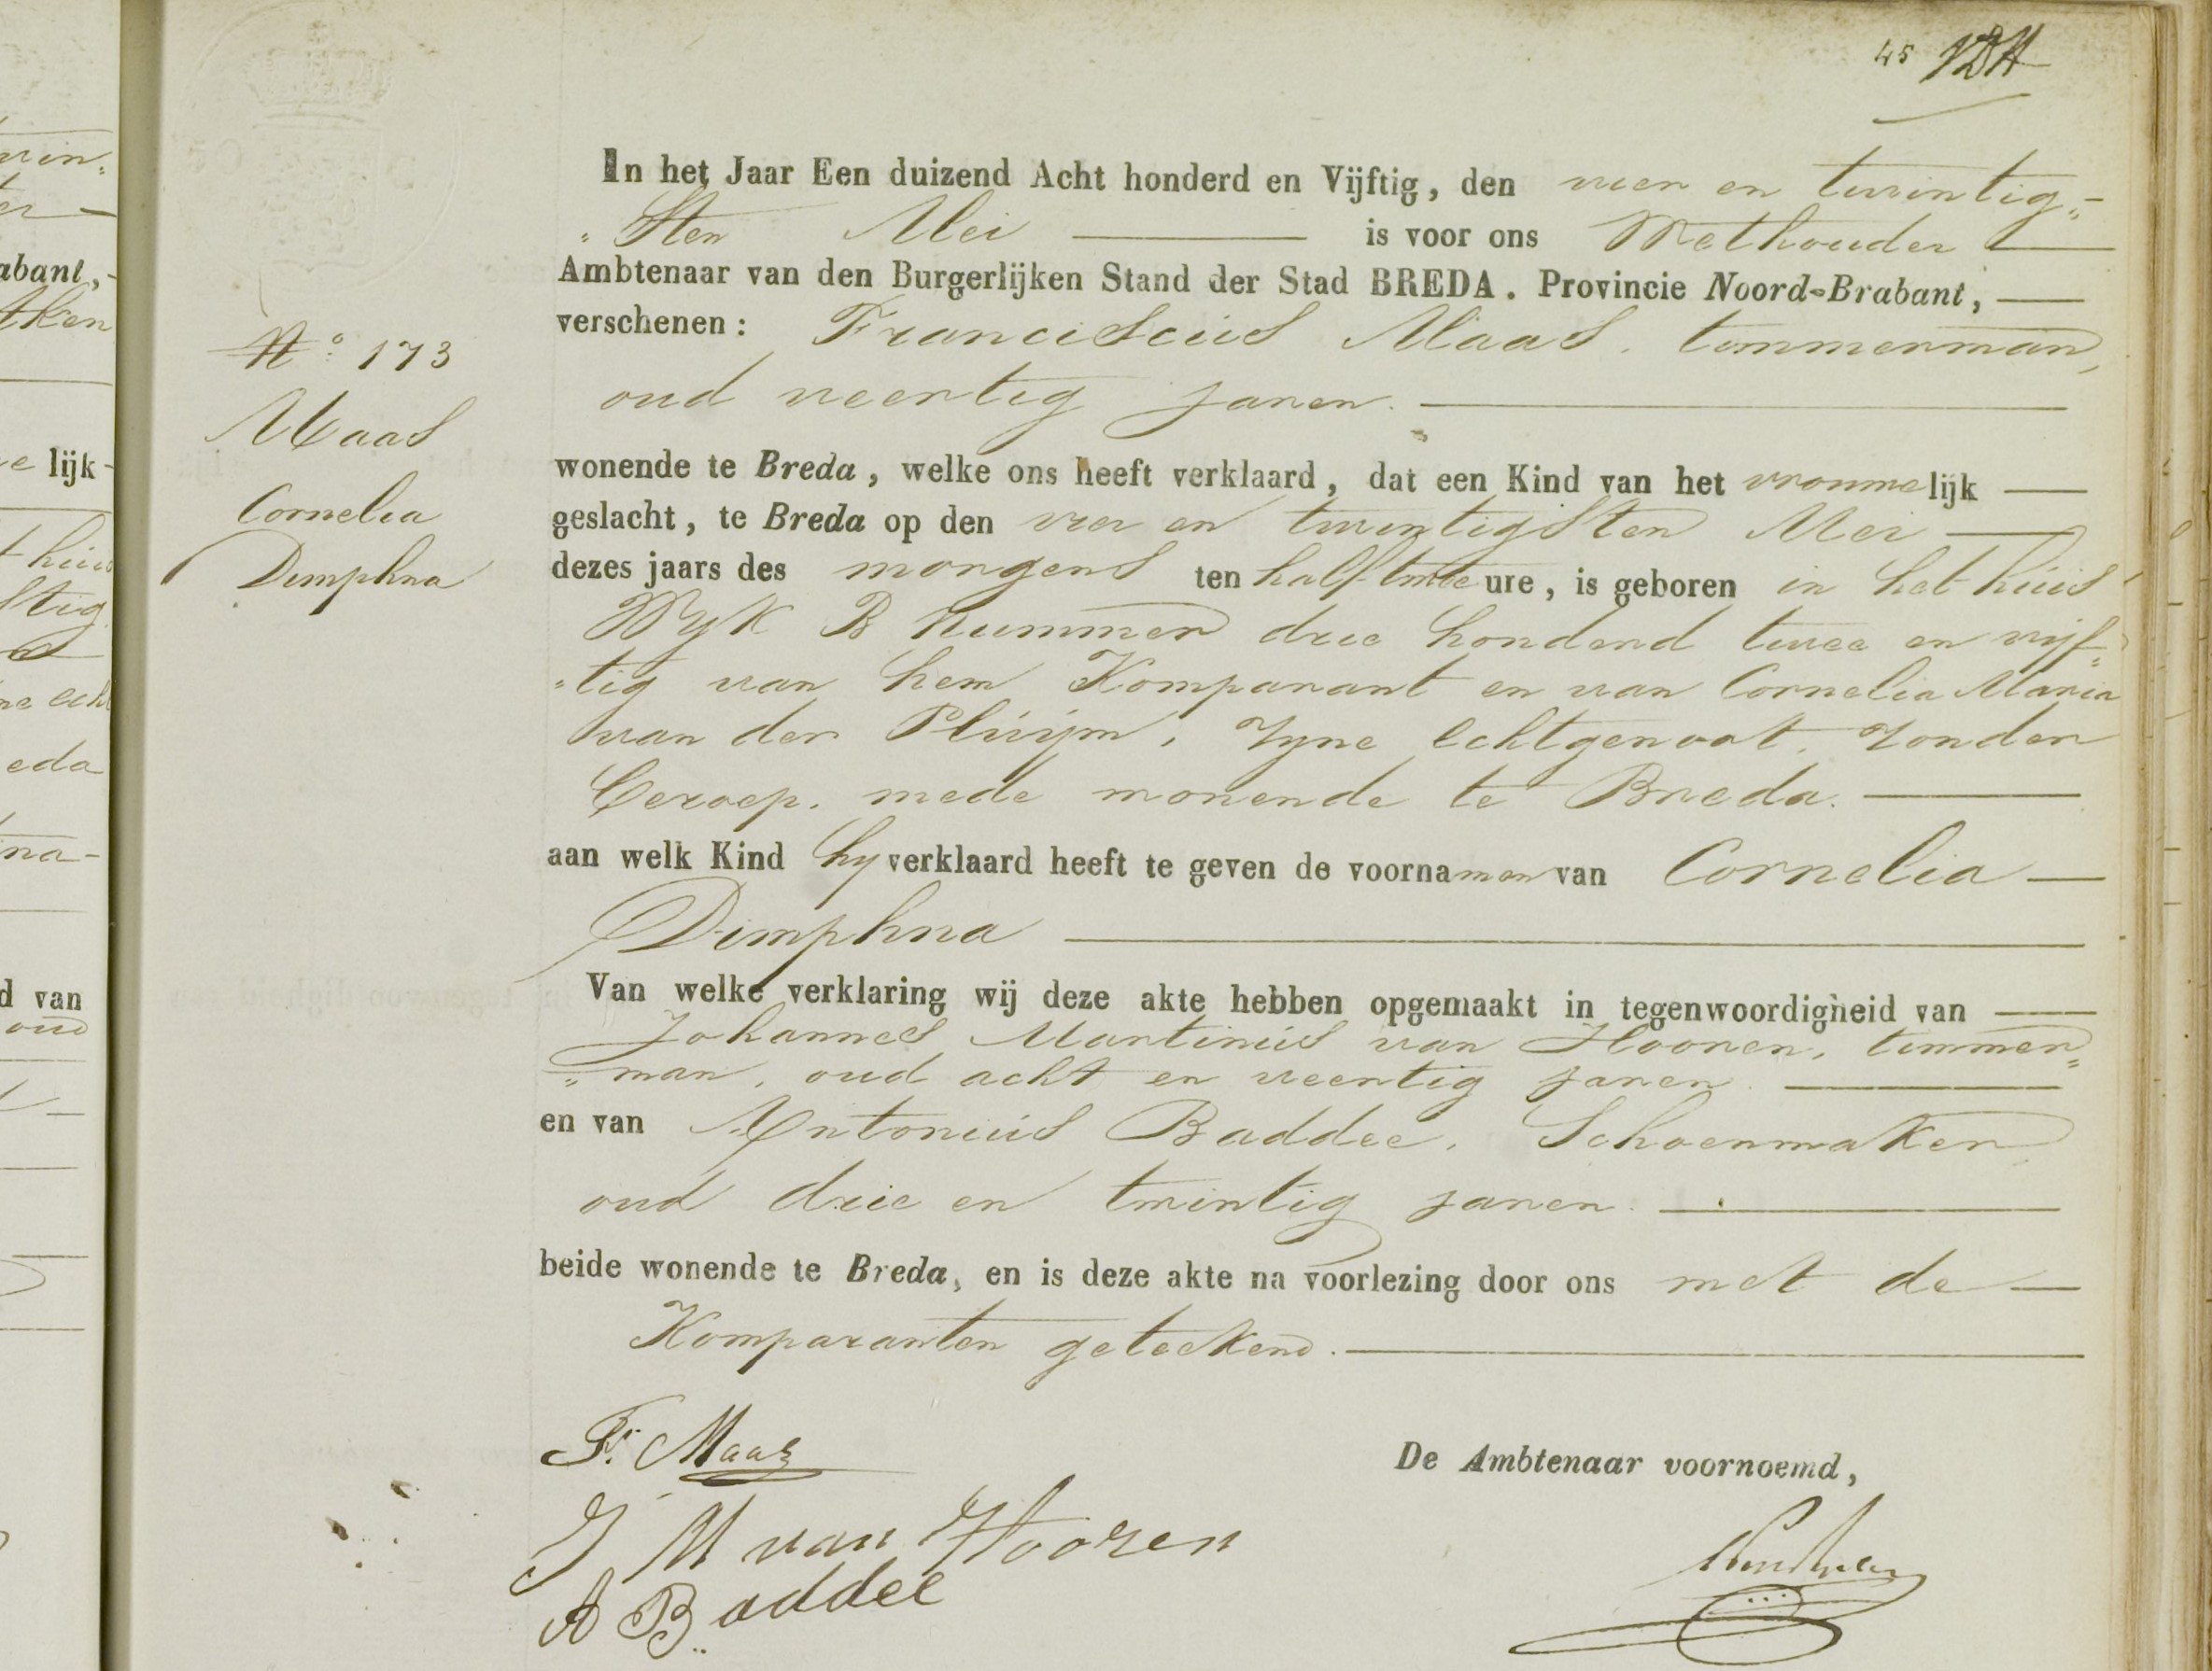 45 VDH
In het Jaar Een duizend Acht honderd en Vijftig, den vier en twintig„
„sten Mei is voor ons Wethouder
Ambtenaar van den Burgerlijken Stand der Stad BREDA. Provincie Noord-Brabant,
verschenen: Franciscus Maas, timmerman,
oud veertig jaren.
wonende te Breda, welke ons heeft verklaard, dat een Kind van het vrouwelijk
geslacht, te Breda op den vier en twintigsten Mei
dezes jaars des morgens ten half twee ure, is geboren in het huis
Wyk B nummer drie honderd twee en vijf„
„tig van hem Komparant en van Cornelia Maria
van der Pluijm, Zyne Echtgenoot, Zonder
Beroep, mede wonende te Breda.
aan welk Kind hy verklaard heeft te geven de voornamen van Cornelia
Dimphna
Van welke verklaring wij deze akte hebben opgemaakt in tegenwoordigheid van
Johannes Martinus van Hooren, timmer„
„man, oud acht en veertig jaren.
en van Antonius Baddee, Schoenmaker
oud drie en twintig jaren.
beide wonende te Breda, en is deze akte na voorlezing door ons met de
Komparanten geteekend.
N° 173
Maas
Cornelia
Dimphna
Fr. Maas
J M van Hooren
A Baddee
De Ambtenaar voornoemd,
vin„
abant,
lijk
t huis
stig
eda
na
d van
oud